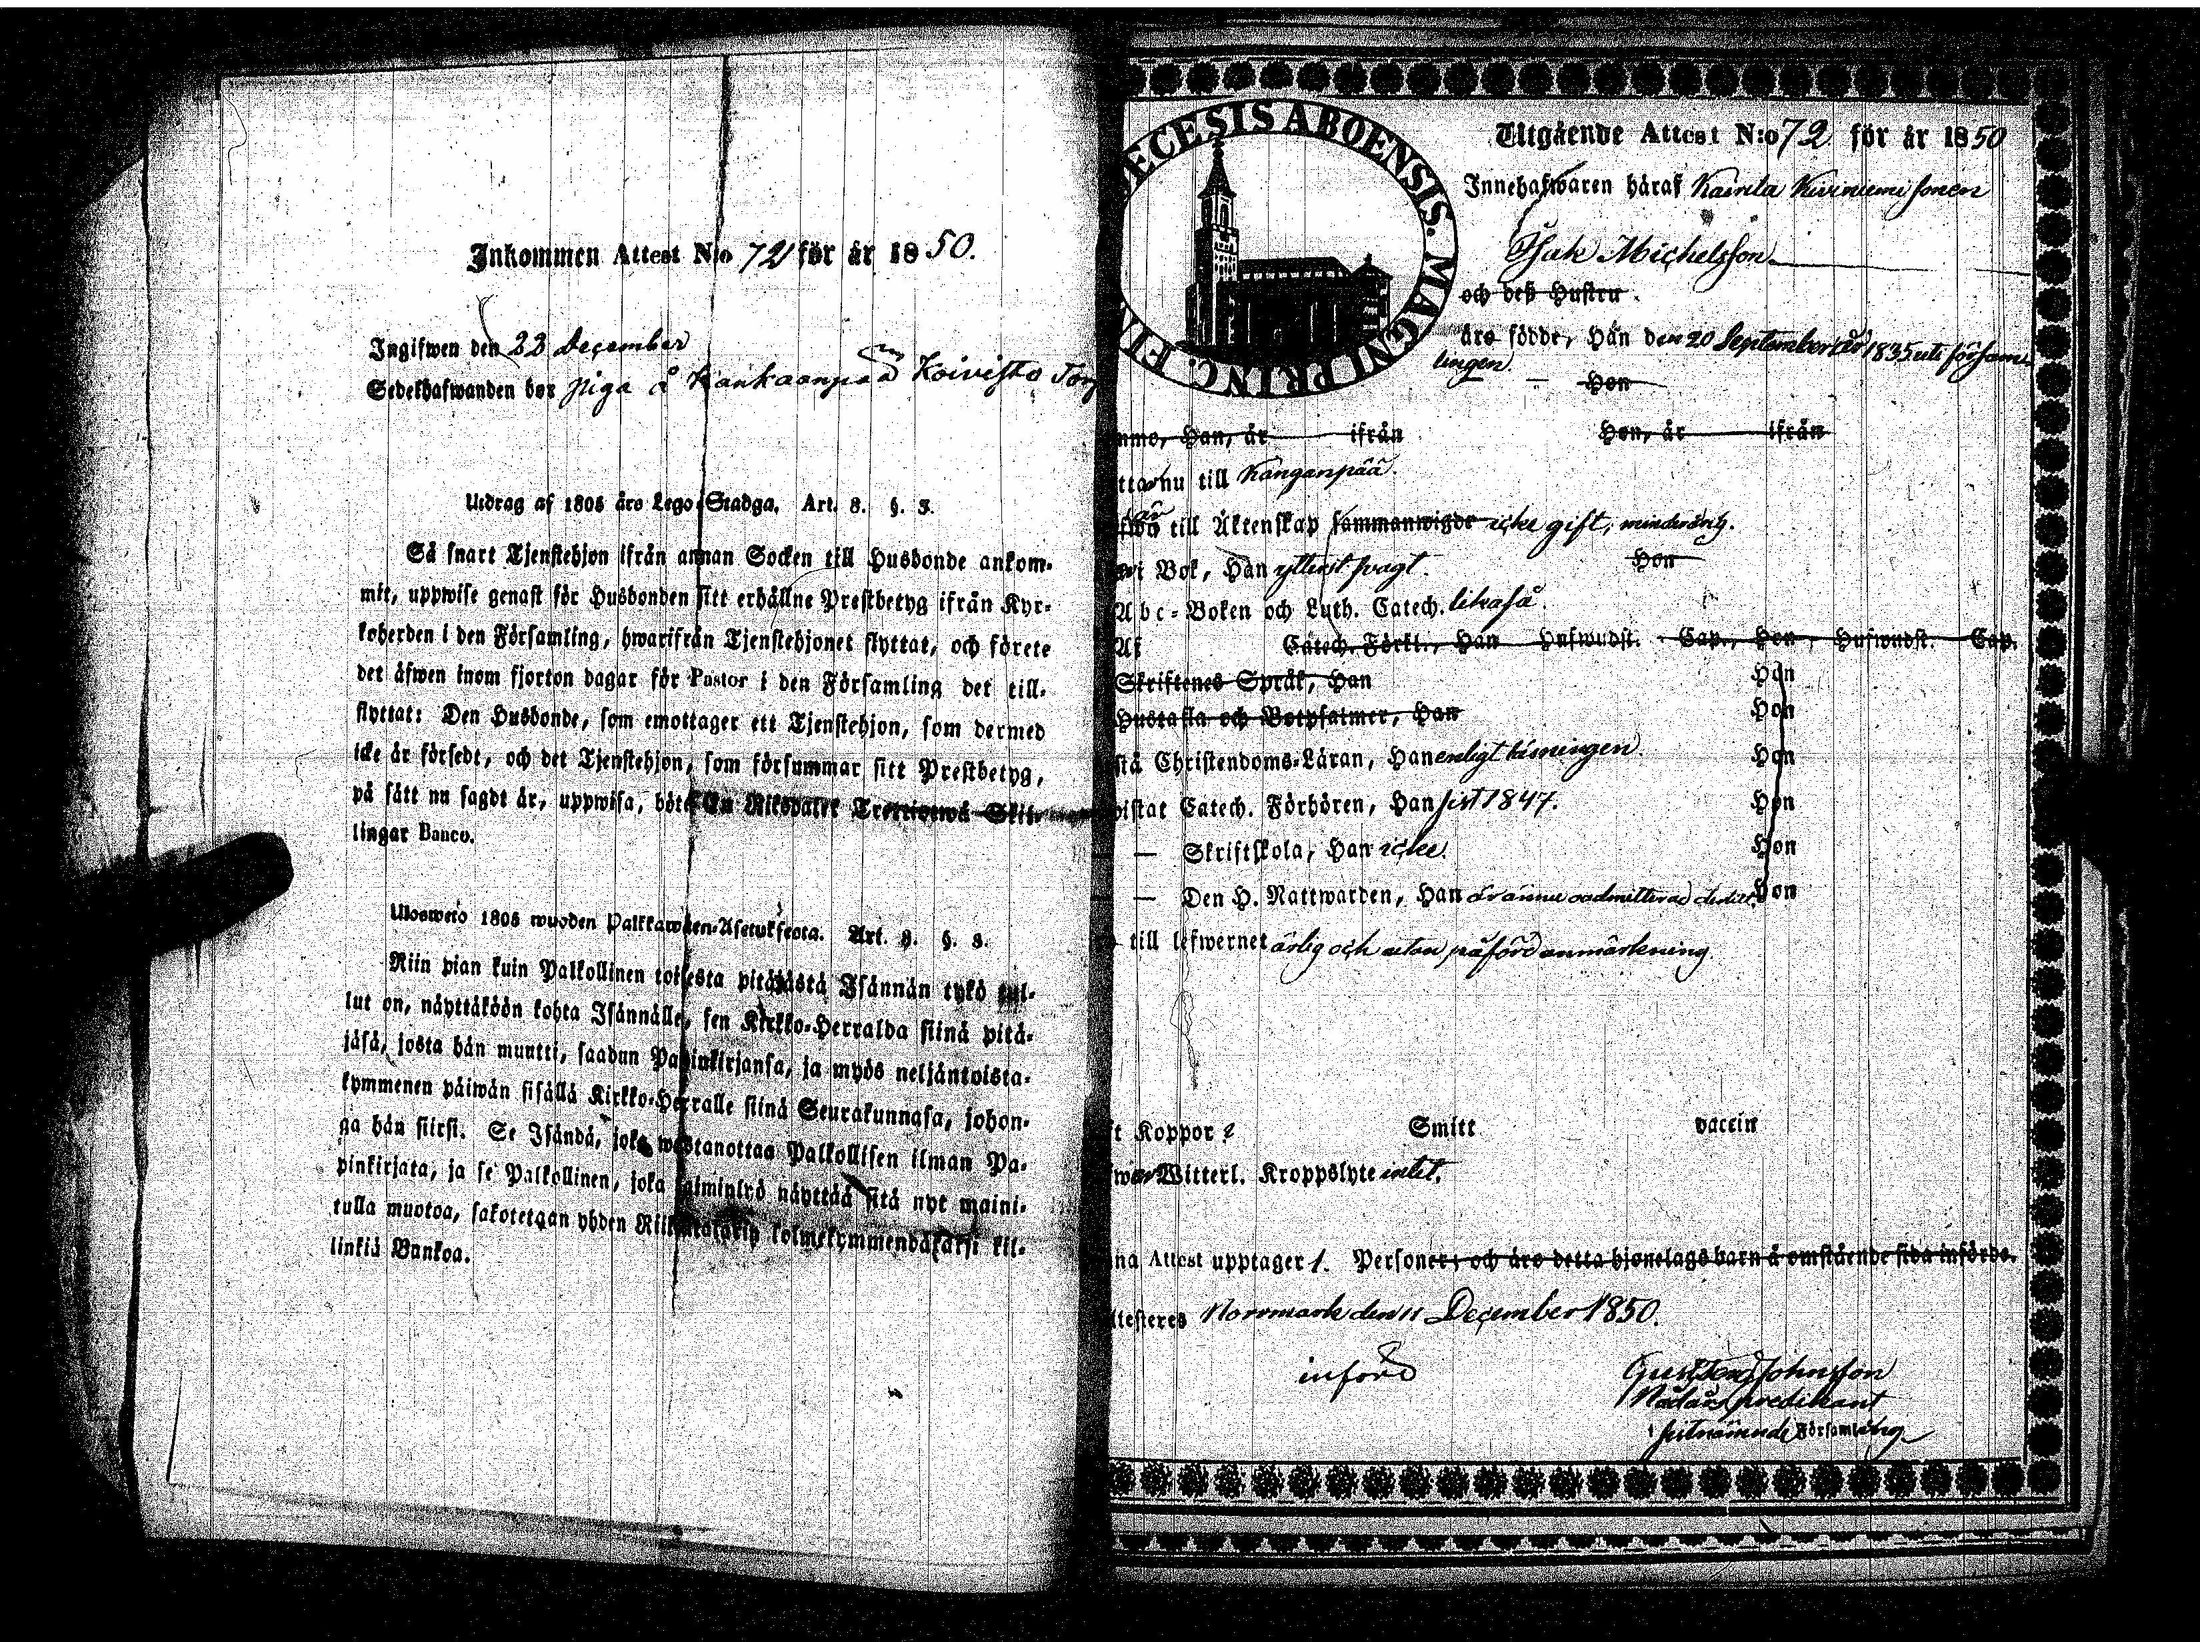 Inkommen Attest N:o 72 för år 1850.
Ingifwen den 23 December
Sedelhafwanden bor piga å Kankaanpää Koivisto Torp
Utdrag af 1805 års Lego-Stadga. Art. 8. §. 3.
Så snart Tjenstehjon ifrån annan Socken till Husbonde ankom-
mit, uppwise genast för Husbonden sitt erhållne Prestbetyg ifrån Kyr-
koherden i den Församling, hwarifrån Tjenstehjonet flyttat, och förete
det äfwen inom fjorton dagar för Pastor i den Församling det till-
flyttat: Den Husbonde, som emottager ett Tjenstehjon, som dermed
icke är försedt, och det Tjenstehjon, som försummar sitt Prestbetyg,
på sätt nu sagdt är, uppwisa, böte En Riksdaler Trettiotwå Skil-
lingar Banco.
Ulosweto 1805 wuoden Palkkawäen-Asetuksesta. Art. 8. §. 3.
Niin pian kuin Palkollinen toisesta pitäjästä Isännän tykö tul-
lut on, näyttäköön kohta Isännälle, sen Kirkko-Herralda siinä pitä-
jäsä, josta hän muutti, saadun Papinkirjansa, ja myös neljäntoista-
kymmenen päiwän sisällä Kirkko-Herralle siinä Seurakunnasa, johon-
ga hän siirsi. Se Isändä, joka wastanottaa Palkollisen ilman Pa-
pinkirjata, ja se Palkollinen, joka laiminlyö näyttää sitä nyt maini-
tulla muotoa, sakotetaan yhden Riksitalarin kolmekymmendäkaksi kil-
linkiä Bankoa.
ECESIS ABOENSIS. MAGNI PRINC. FIN
Utgående Attest N:o 72 för år 1850
Innehafwaren häraf Kairila Kiviniemi sonen
Isak Michelsson
och deß Hustru
äro födde, Han den 20 September år 1835 uti försam-
lingen. — Hon
mmo, Han, år ifrån Hon, år ifrån
ttar nu till Kanganpää.
är
fwa till Äktenskap sammanwigde icke gift, minderårig.
wi Bok, Han ytterst swagt. Hon
Abc-Boken och Luth. Catech. likaså.
Af Catech. Förkl., Han Hufwudst. Cap., Hon, Hufwudst. Cap.
Skriftenes Språk, Han Hon
Hustafla och Botpsalmer, Han Hon
stå Christendoms-Läran, Han enligt läsningen. Hon
vistat Catech. Förhören, Han sist 1847. Hon
— Skriftskola, Han icke. Hon
— Den H. Nattwarden, Han är ännu oadmitterad dertill. Hon
till lefwernet ärlig och utan påförd anmärkning.
ft Koppor ? Smitt vaccin
wer Witterl. Kroppslyte intet.
na Attest upptager 1. Personer, och äro detta hjonelags barn å omstående sida införde.
ttesteres Norrmark den 11 December 1850.
införd
Gustaf Johnsson
Nådårs predikant
i sistnämnde Församling